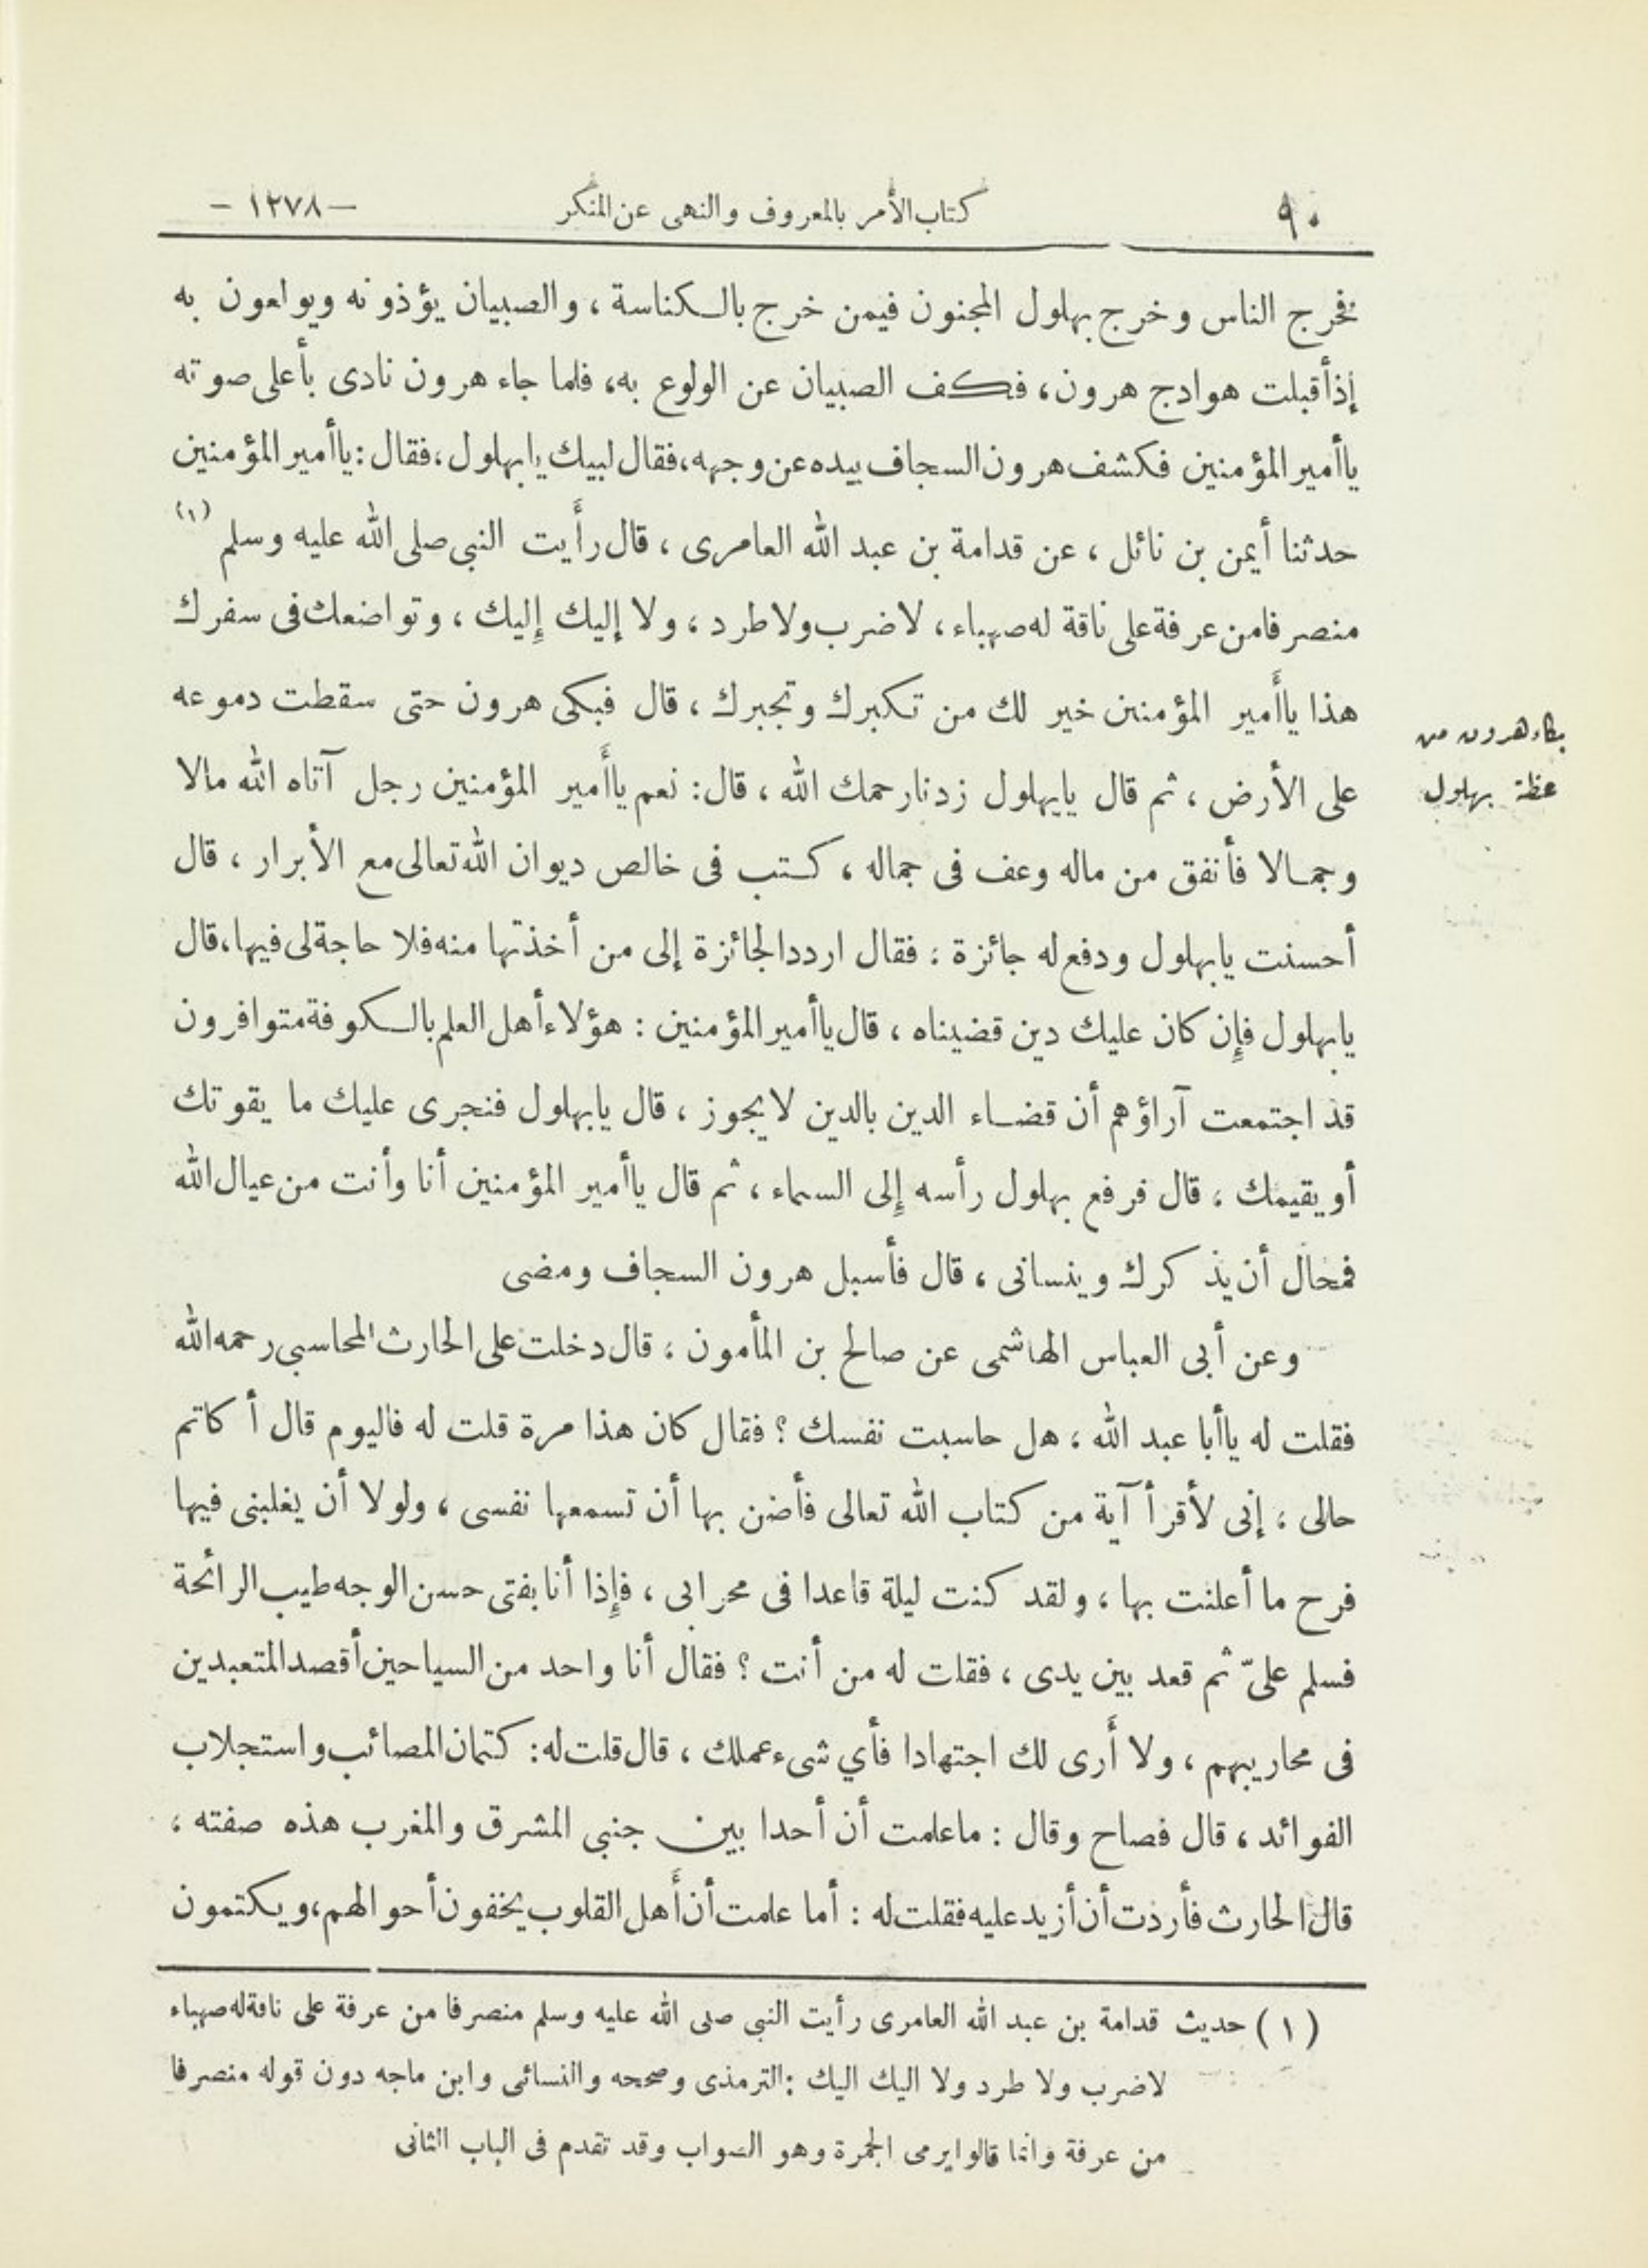 ٩٠
كتاب الأمر بالمعروف والنهى عن المنكر
— ١٢٧٨ —
فخرج الناس وخرج بهلول المجنون فيمن خرج بالكناسة ، والصبيان يؤذونه ويولعون به
إذ أقبلت هوادج هرون ، فكف الصبيان عن الولوع به ، فلما جاء هرون نادى بأعلى صوته
يا أمير المؤمنين فكشف هرون السجاف بيده عن وجهه ، فقال لبيك يا بهلول ، فقال : يا أمير المؤمنين
حدثنا أيمن بن نائل ، عن قدامة بن عبد الله العامرى ، قال رأيت النبى صلى الله عليه وسلم (١)
منصرفا من عرفة على ناقة له صهباء ، لا ضرب ولا طرد ، ولا إليك إليك ، وتواضعك فى سفرك
هذا يا أمير المؤمنين خير لك من تكبرك وتجبرك ، قال فبكى هرون حتى سقطت دموعه
على الأرض ، ثم قال يا بهلول زدنا رحمك الله ، قال : نعم يا أمير المؤمنين رجل آتاه الله مالا
وجمالا فأنفق من ماله وعف فى جماله ، كتب فى خالص ديوان الله تعالى مع الأبرار ، قال
أحسنت يا بهلول ودفع له جائزة ؛ فقال اردد الجائزة إلى من أخذتها منه فلا حاجة لى فيها ، قال
يا بهلول فإن كان عليك دين قضيناه ، قال يا أمير المؤمنين : هؤلاء أهل العلم بالكوفة متوافرون
قد اجتمعت آراؤهم أن قضاء الدين بالدين لا يجوز ، قال يا بهلول فنجرى عليك ما يقوتك
أو يقيمك ، قال فرفع بهلول رأسه إلى السماء ، ثم قال يا أمير المؤمنين أنا وأنت من عيال الله
فمحال أن يذكرك وينسانى ، قال فأسبل هرون السجاف ومضى
وعن أبى العباس الهاشمى عن صالح بن المأمون ، قال دخلت على الحارث المحاسبى رحمه الله
فقلت له يا أبا عبد الله ، هل حاسبت نفسك ؟ فقال كان هذا مرة قلت له فاليوم قال أكاتم
حالى ، إنى لأقرأ آية من كتاب الله تعالى فأضن بها أن تسمعها نفسى ، ولولا أن يغلبنى فيها
فرح ما أعلنت بها ، ولقد كنت ليلة قاعدا فى محرابى ، فإذا أنا بفتى حسن الوجه طيب الرائحة
فسلم علىّ ثم قعد بين يدى ، فقلت له من أنت ؟ فقال أنا واحد من السياحين أقصد المتعبدين
فى محاريبهم ، ولا أرى لك اجتهادا فأي شىء عملك ، قال قلت له : كتمان المصائب واستجلاب
الفوائد ، قال فصاح وقال : ما علمت أن أحدا بين جنبى المشرق والمغرب هذه صفته ،
قال الحارث فأردت أن أزيد عليه فقلت له : أما علمت أن أهل القلوب يخفون أحوالهم ، ويكتمون
بكاء هرون من
عظة بهلول
(١) حديث قدامة بن عبد الله العامرى رأيت النبى صلى الله عليه وسلم منصرفا من عرفة على ناقة له صهباء
لا ضرب ولا طرد ولا اليك اليك : الترمذى وصححه والنسائى وابن ماجه دون قوله منصرفا
من عرفة وانما قالوا يرمى الجمرة وهو الصواب وقد تقدم فى الباب الثانى